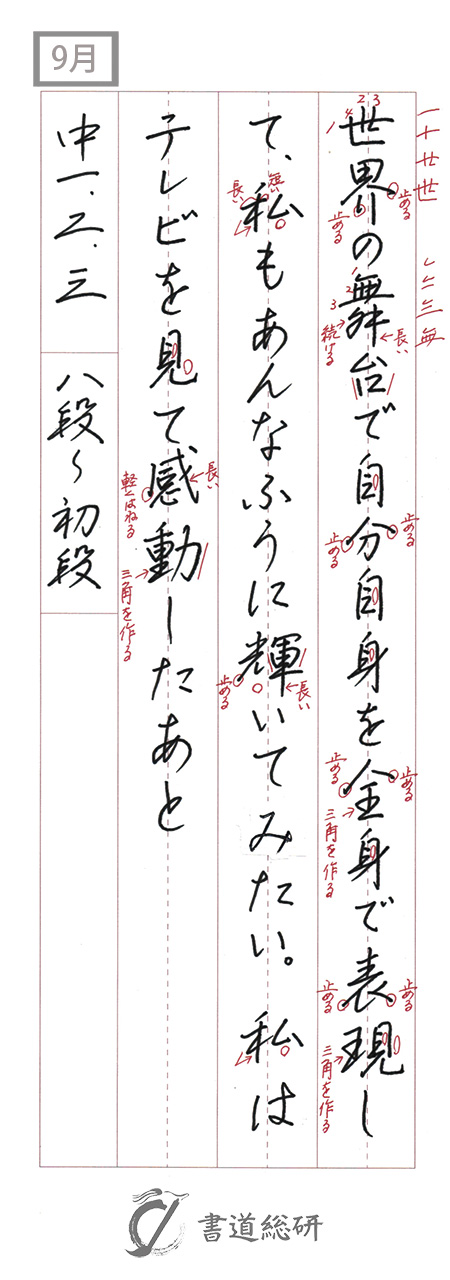 9月
世界の舞台で自分自身を全身で表現し
て、私もあんなふうに輝いてみたい。 私は
テレビを見て、感動したあと
中一、二、三 八段〜初段
一十廿世
ノ 2 3
4
止める
止める
無
1
2
3
続ける
長い
止める
止める
止める
止める
三角を作る
止める
止める
三角を作る
長い
短い
止める
長い
長い
軽くはねる
三角を作る
書道総研